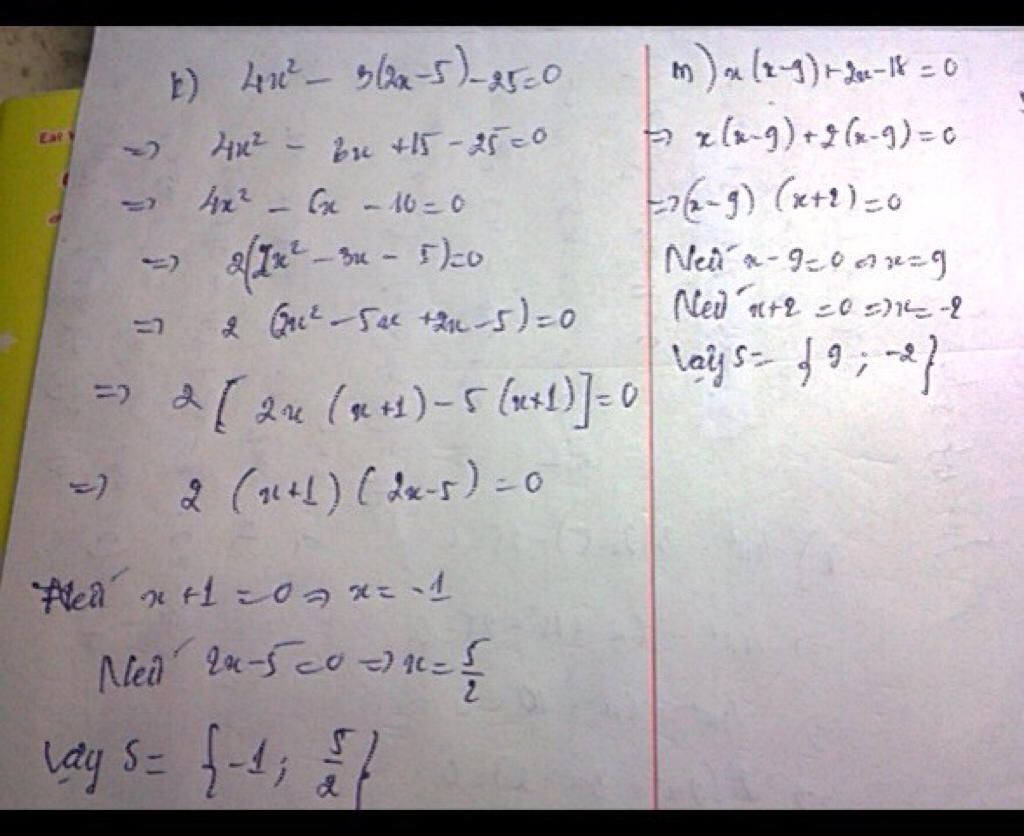 k) 4x² - 3(2x-5) - 25 = 0
=> 4x² - 6x + 15 - 25 = 0
=> 4x² - 6x - 10 = 0
=> 2(2x² - 3x - 5) = 0
=> 2 (2x² - 5x + 2x - 5) = 0
=> 2 [ 2x (x+1) - 5 (x+1)] = 0
=> 2 (x+1) (2x-5) = 0
Nếu x+1 = 0 => x = -1
Nếu 2x-5 = 0 => x = 5/2
Vậy S = {-1; 5/2}
m) x(x-9) + 2x - 18 = 0
=> x(x-9) + 2(x-9) = 0
=> (x-9) (x+2) = 0
Nếu x-9 = 0 => x = 9
Nếu x+2 = 0 => x = -2
Vậy S = {9; -2}